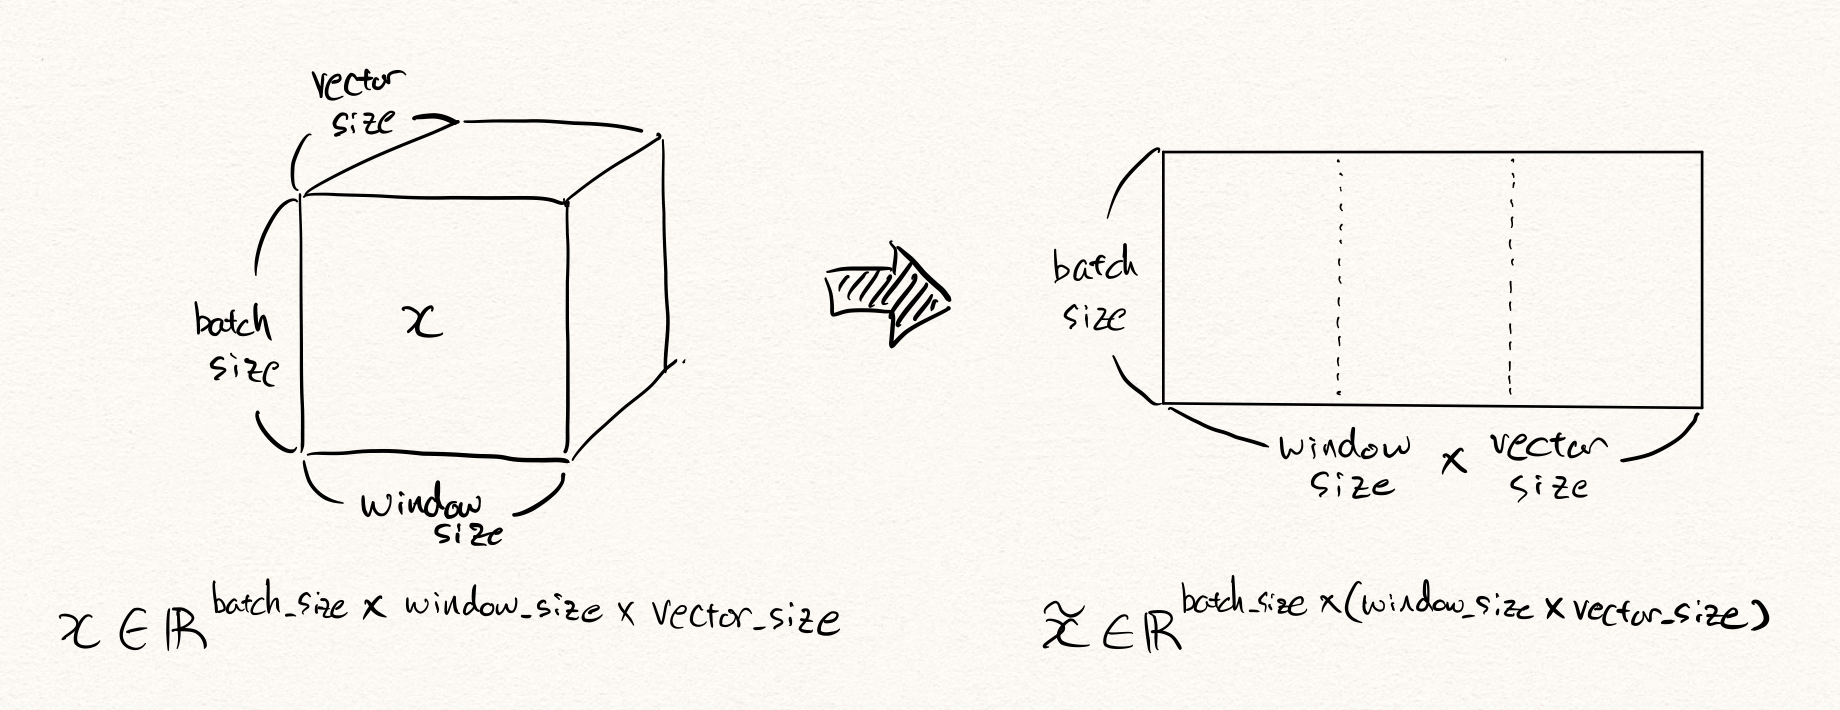 vector
size
batch
size
x
window
size
x ∈ ℝ^batch_size × window_size × vector_size
batch
size
window size × vector size
x̃ ∈ ℝ^batch_size × (window_size × vector_size)